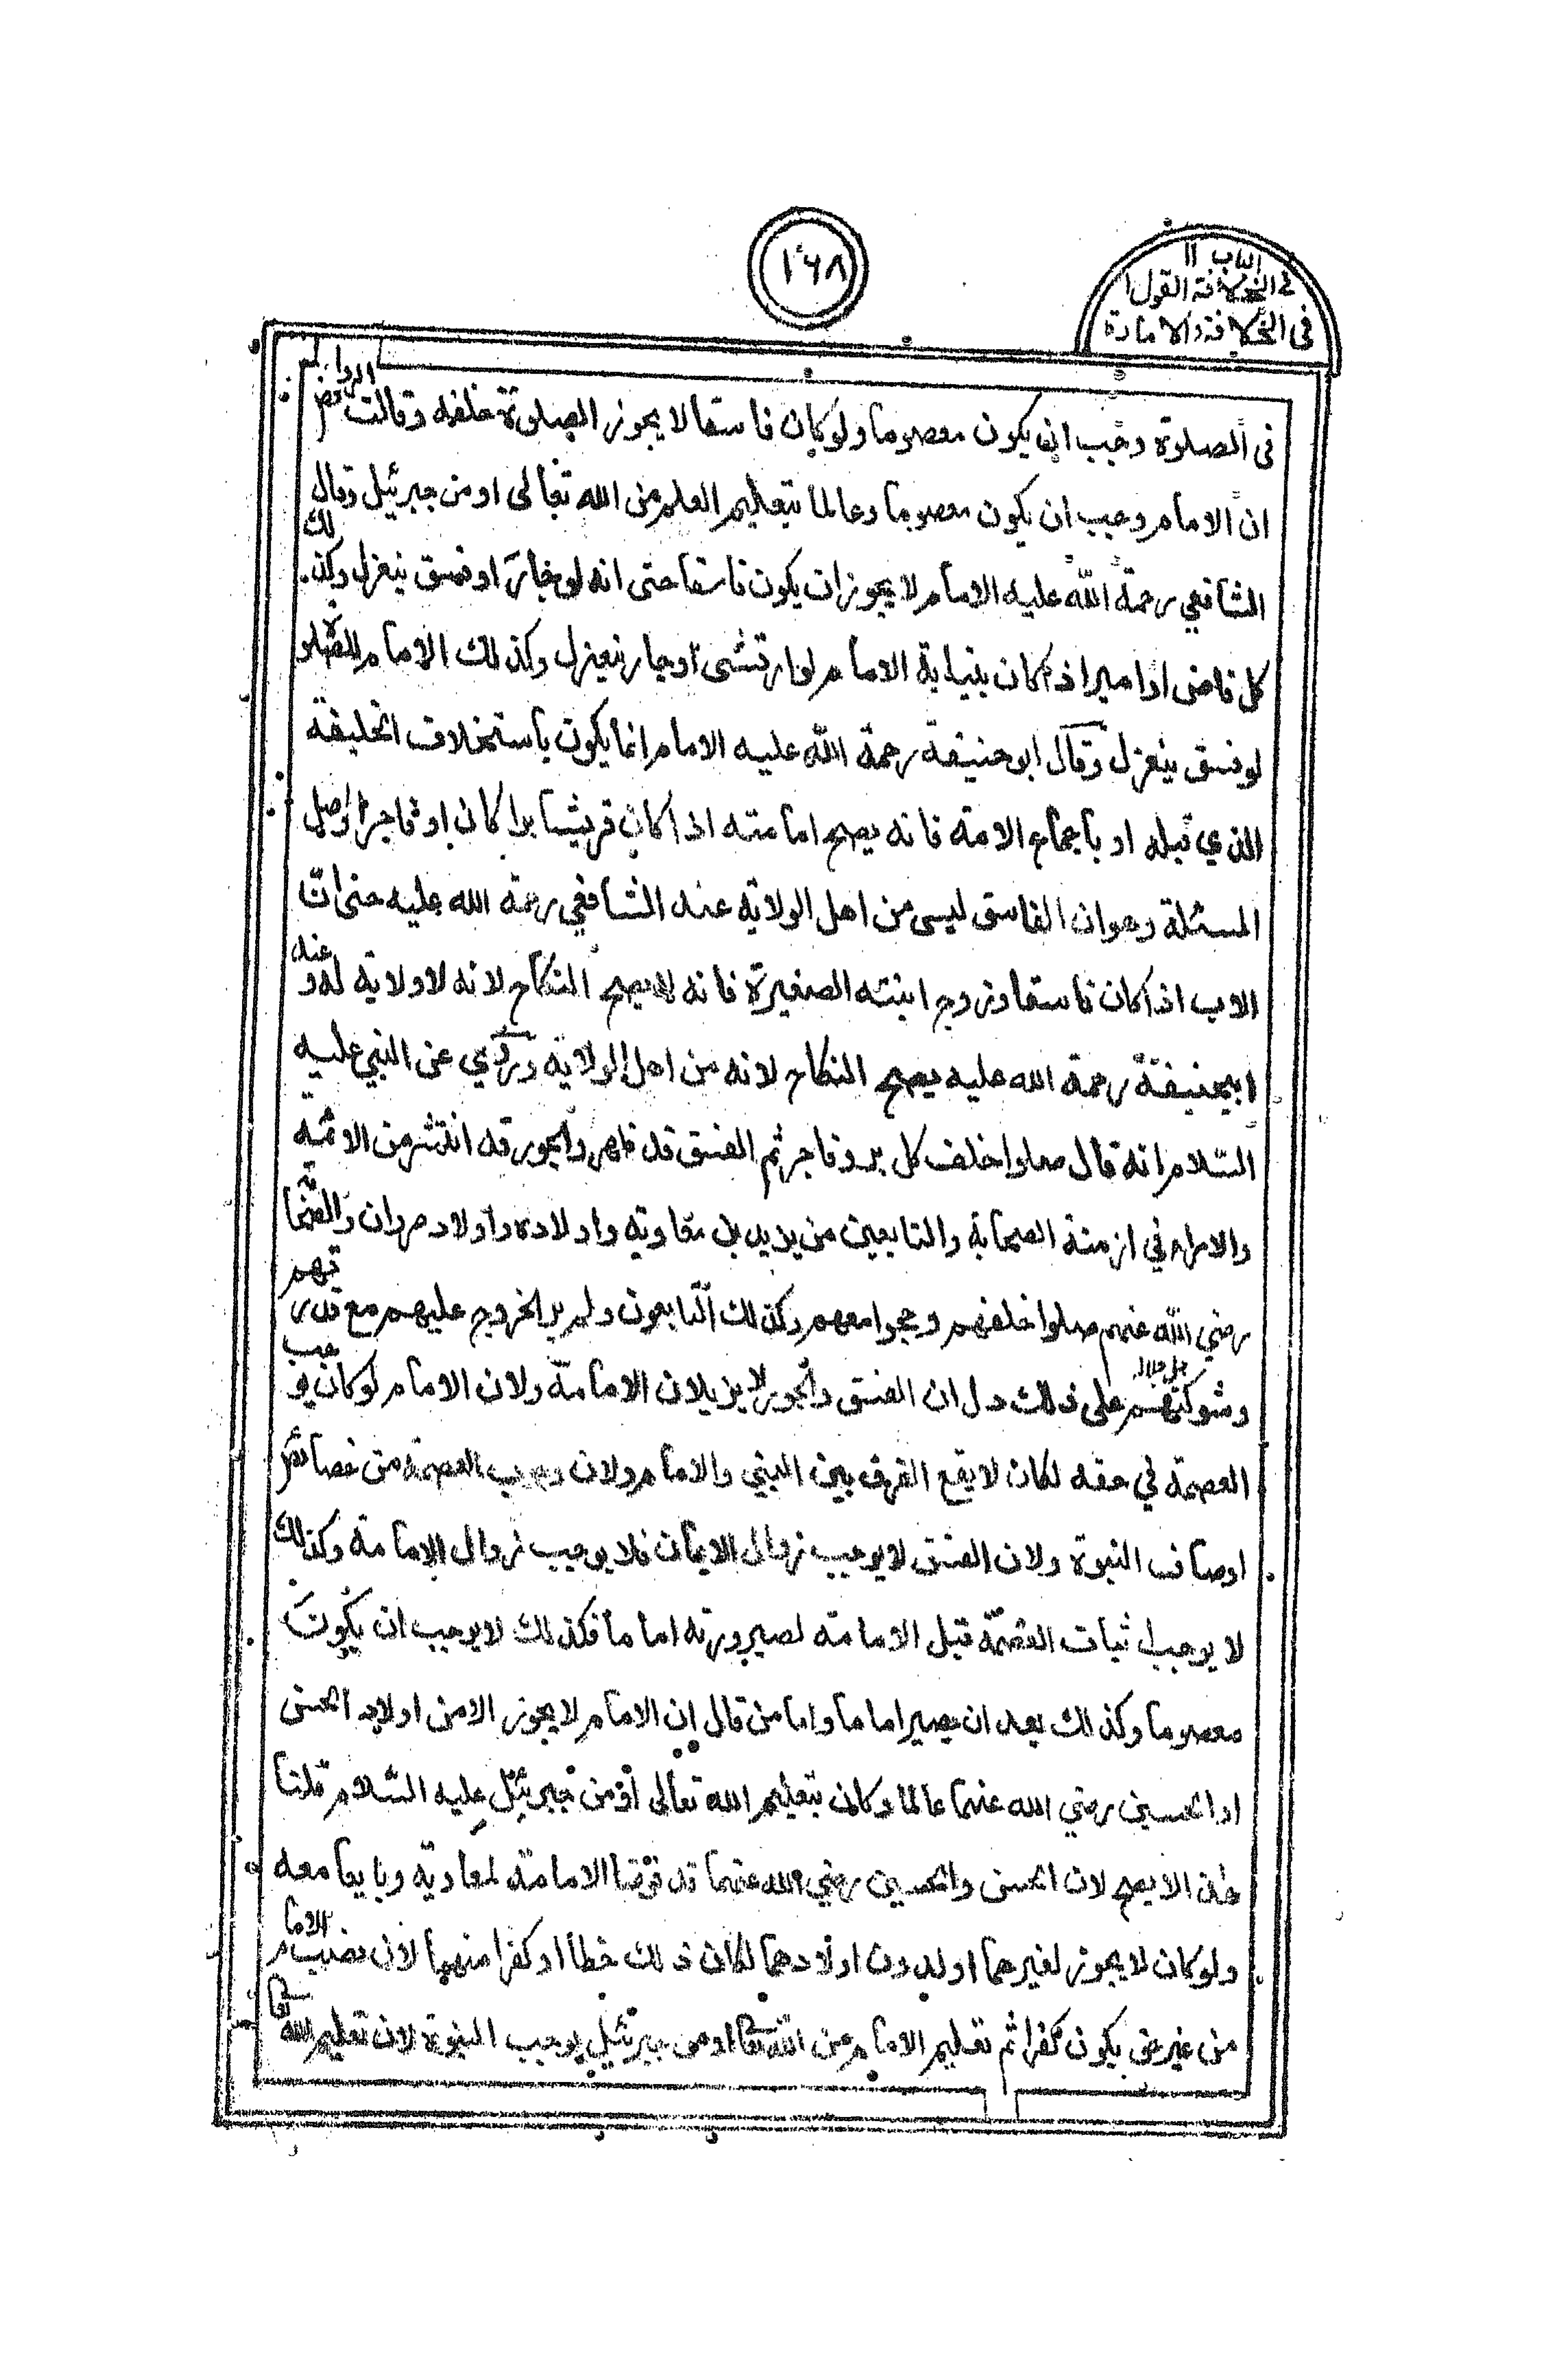 ١٦٨
الباب ١١
فى الخلافة القول ١
فى الخلافة والامارة
فى الصلوة وجب ان يكون معصوما ولو كان فاسقا لا يجوز الصلوة خلفه وقالت الروافض
ان الامام وجب ان يكون معصوما وعالما بتعليم العلم من الله تعالى او من جبرئيل وقال
الشافعي رحمة الله عليه الامام لا يجوز ان يكون فاسقا حتى انه لو جار او فسق ينعزل وكذلك
كل قاضى او امير اذا كان بنيابة الامام لو ارتشى او جار ينعزل وكذلك الامام للصلوة
لو فسق ينعزل وقال ابو حنيفة رحمة الله عليه الامام انما يكون باستخلاف الخليفة
الذي قبله او باجماع الامة فانه يصح امامته اذا كان قريشيا برا كان او فاجرا واصل
المسئلة وهو ان الفاسق ليس من اهل الولاية عند الشافعي رحمة الله عليه حتى ان
الاب اذا كان فاسقا وزوج ابنته الصغيرة فانه لا يصح النكاح لانه لا ولاية له وعند
ابيحنيفة رحمة الله عليه يصح النكاح لانه من اهل الولاية وروي عن النبي عليه
السلام انه قال صلوا خلف كل بر وفاجر ثم الفسق قد ظهر والجور قد انتشر من الائمة
والامراء في ازمنة الصحابة والتابعين من يزيد بن معاوية واولاده واولاد مروان والصحابة
رضي الله عنهم صلوا خلفهم وحجوا معهم وكذلك التابعون ولم ير الخروج عليهم مع قدرتهم
وشوكتهم على ذلك دل ان الفسق والجور لا يزيلان الامامة ولان الامام لو كان وجب
العصمة في حقه لكان لا يقع الفرق بين النبي والامام ولان وجوب العصمة من خصائص
اوصاف النبوة ولان الفسق لا يوجب زوال الايمان فلا يوجب زوال الامامة وكذلك
لا يوجب اثبات العصمة قبل الامامة لصيرورته اماما فكذلك لا يوجب ان يكون
معصوما وكذلك بعد ان يصير اماما واما من قال ان الامام لا يجوز الا من اولاد الحسن
او الحسين رضي الله عنهما عالما وكان بتعليم الله تعالى او من جبرئيل عليه السلام قلنا
هذا لا يصح لان الحسن والحسين رضي الله عنهما قد فوضا الامامة لمعاوية وبايعا معه
ولو كان لا يجوز لغيرهما او بدون اولادهما لكان ذلك خطأ او كفرا منهما لان نصب الامام
من غير حق يكون كفرا ثم تعليم الامام من الله تعا او من جبرئيل يوجب النبوة لان تعليم الله تعا